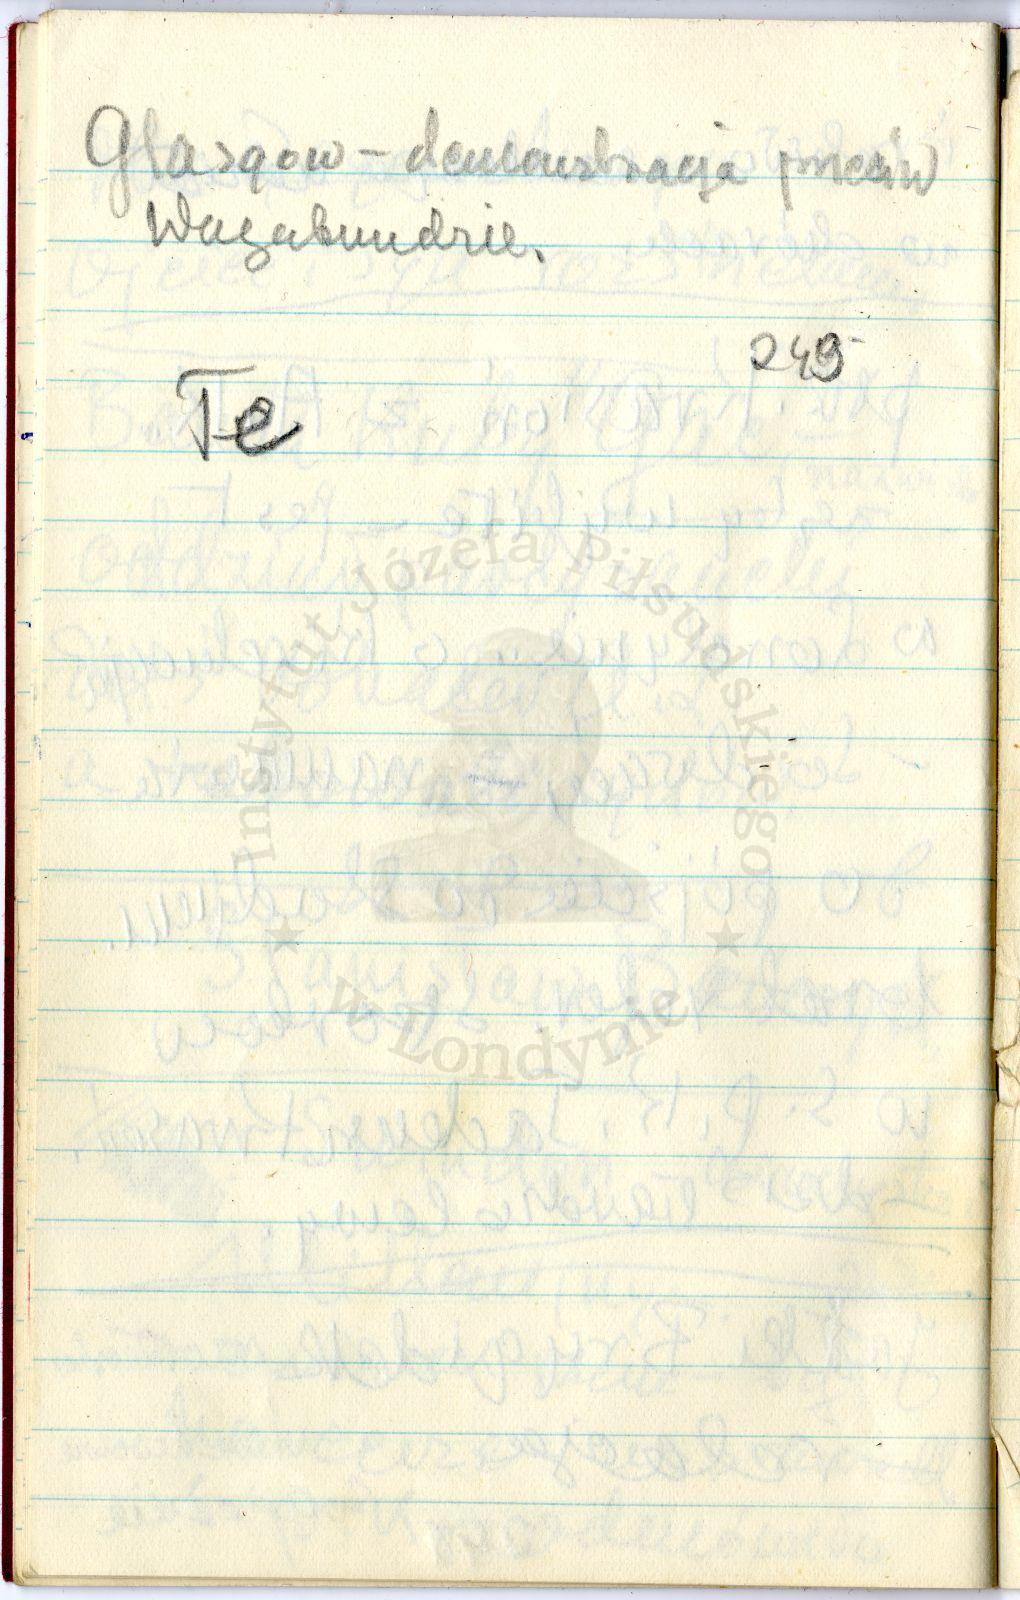 Glasgow – demonstracja przeciw
Wagabundzie.
249
Te
Instytut Józefa Piłsudskiego
w Londynie